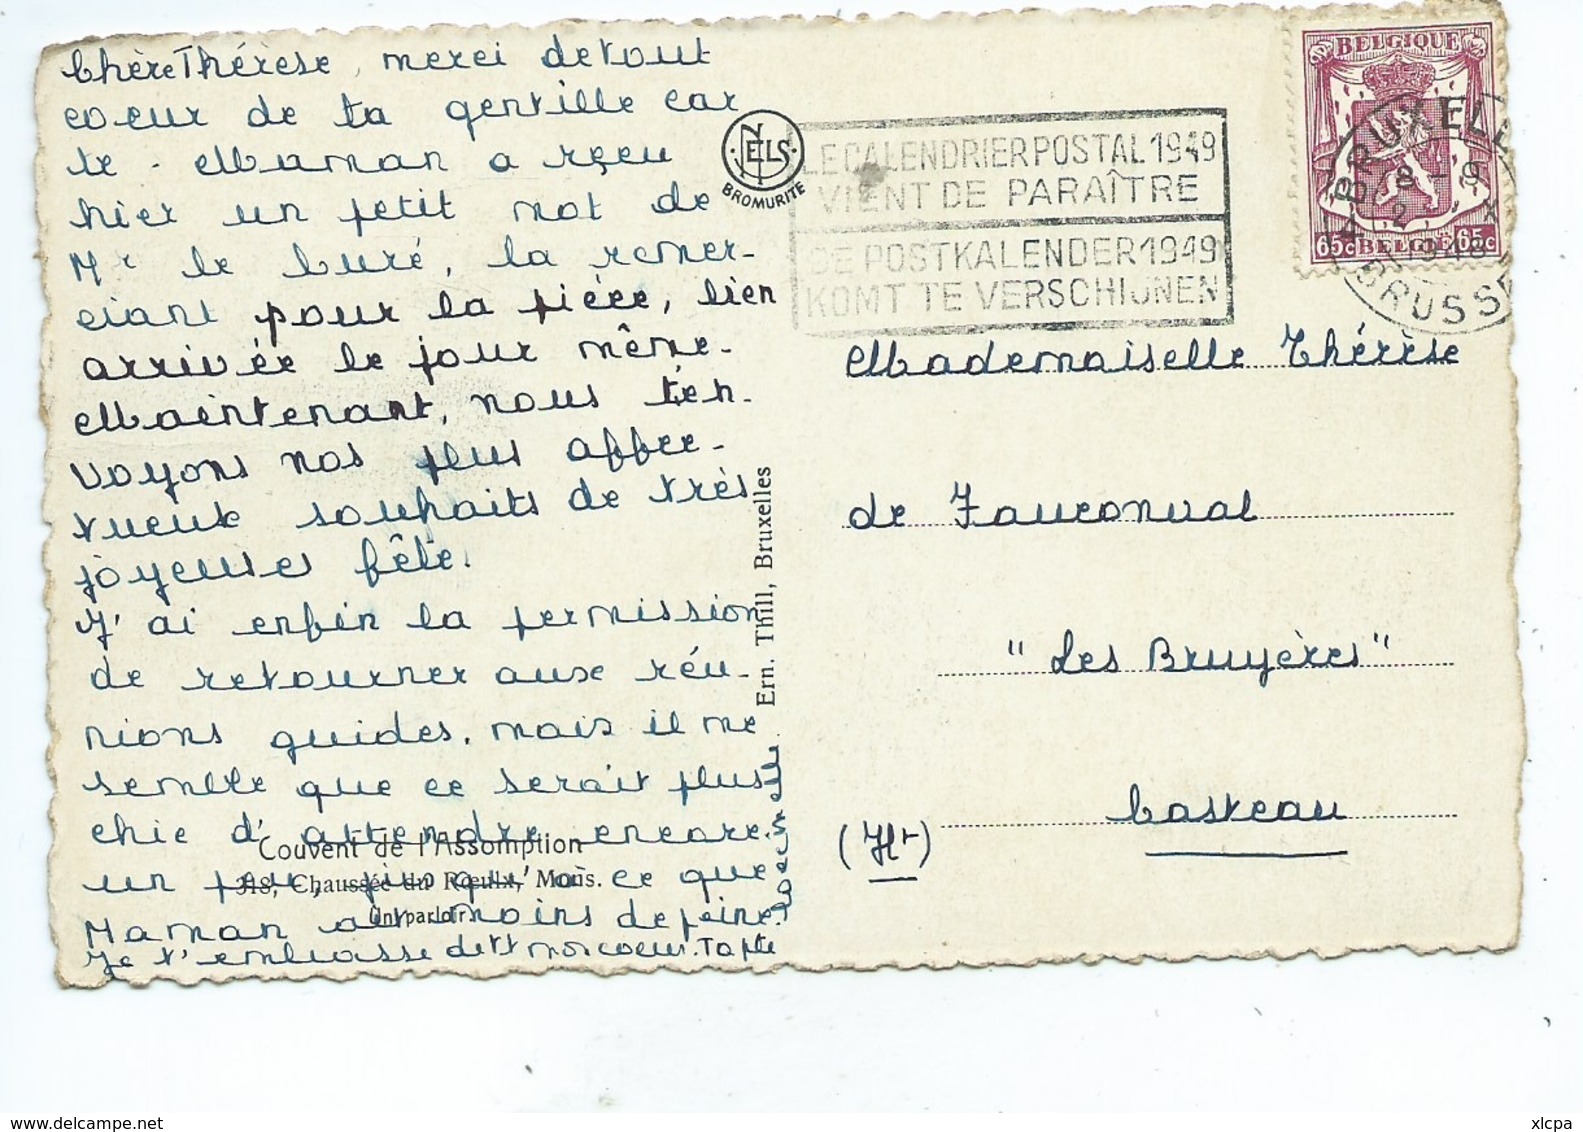 Chère Thérèse, merci de tout
coeur de ta gentille car
te. Maman a reçu
hier un petit mot de
Mr le Curé, la remer-
ciant pour la pièce, bien
arrivée le jour même.
Maintenant, nous t'en-
voyons nos plus affec-
tueux souhaits de très
joyeuses fête.
J'ai enfin la permission
de retourner aux réu-
nions guides, mais il me
semble que ce serait plus
chic d'attendre encore
un peu, jusqu'à ce que
Maman ait moins de peine.
Je t'embrasse de tt mon coeur. Ta pte
Couvent de l'Assomption
318, Chaussée du Rœulx, Mons.
Un parloir
Ern. Thill, Bruxelles
NELS
BROMURITE
LE CALENDRIER POSTAL 1949
VIENT DE PARAÎTRE
DE POSTKALENDER 1949
KOMT TE VERSCHIJNEN
BELGIQUE
65c BELGIË 65c
BRUXELLES
8-9
2 X
1948
BRUSSEL
Mademoiselle Thérèse
de Fauconval
"Les Bruyères"
Casteau
(Ht)
delcampe.net
xlcpa